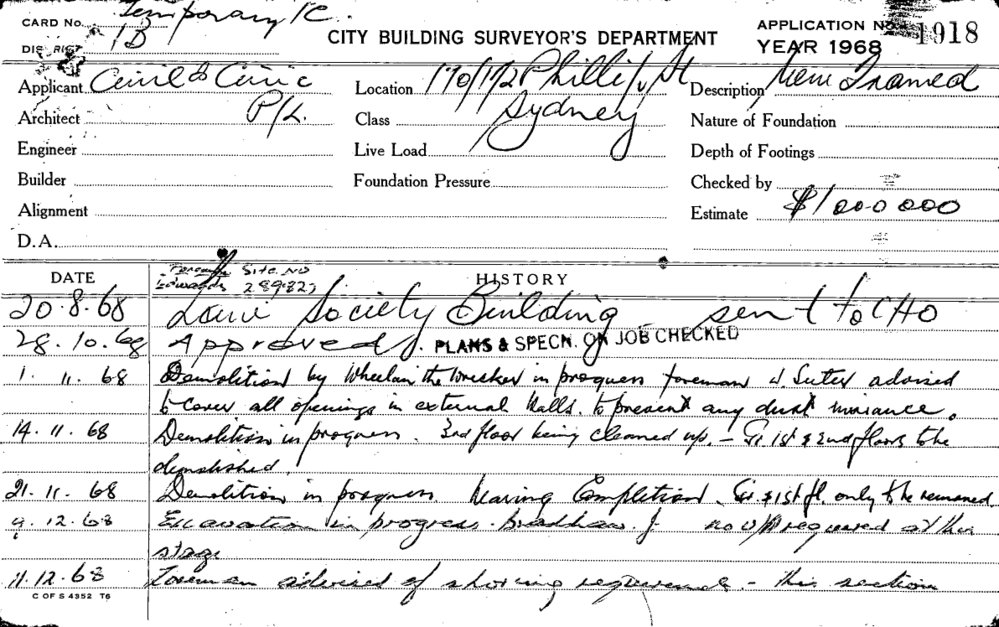 Temporary /C.
CARD No.
CITY BUILDING SURVEYOR'S DEPARTMENT
APPLICATION No. 1918
DISTRICT 1D
YEAR 1968
Applicant Civil & Civic P/L.
Location 170/172 Phillip St Sydney
Description New Framed
Architect
Class
Nature of Foundation
Engineer
Live Load
Depth of Footings
Builder
Foundation Pressure
Checked by
Alignment
Estimate $1,000 000
D.A.
DATE
Site No
HISTORY
Edwards 28982
20.8.68 Law Society Building sent to CHO
28.10.68 Approved. PLANS & SPECN. ON JOB CHECKED
1. 11. 68 Demolition by Whelan the Wrecker in progress foreman J Suter advised
to cover all openings in external walls. to prevent any dust nuisance.
14. 11. 68 Demolition in progress. 3rd floor being cleaned up. – Gr 1st & 2nd floors to be
demolished.
21. 11. 68 Demolition in progress nearing Completion. Gr. & 1st fl. only to be removed.
9. 12. 68 Excavation in progress. no required at this
stage
11.12.68 Foreman advised of shoring requirements – this section
C OF S 4352 T6